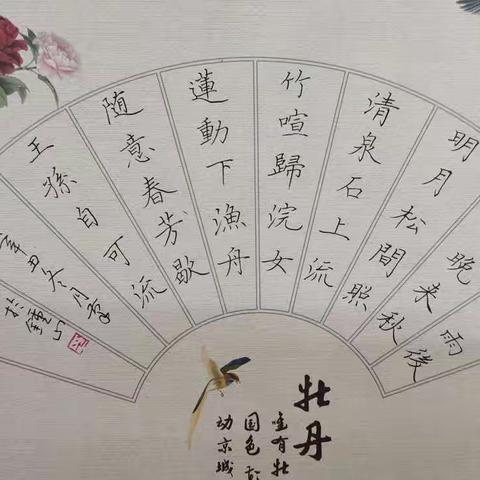 雨後
晚来秋
明月松間照
清泉石上流
竹喧歸浣女
蓮動下漁舟
随意春芳歇
王孫自可流
辛丑冬月
於
牡丹
唯有牡
国色
动京城